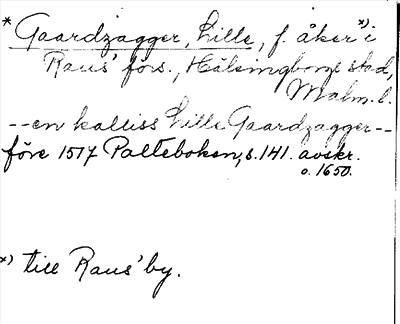 * Gaardzagger, Lille, f. åker *) i
Raus' förs., Hälsingborgs stad,
Malm. l.
-- en kalliss Lille Gaardzagger --
före 1517 Palteboken, s. 141. avskr.
o. 1650.
*) till Raus' by.